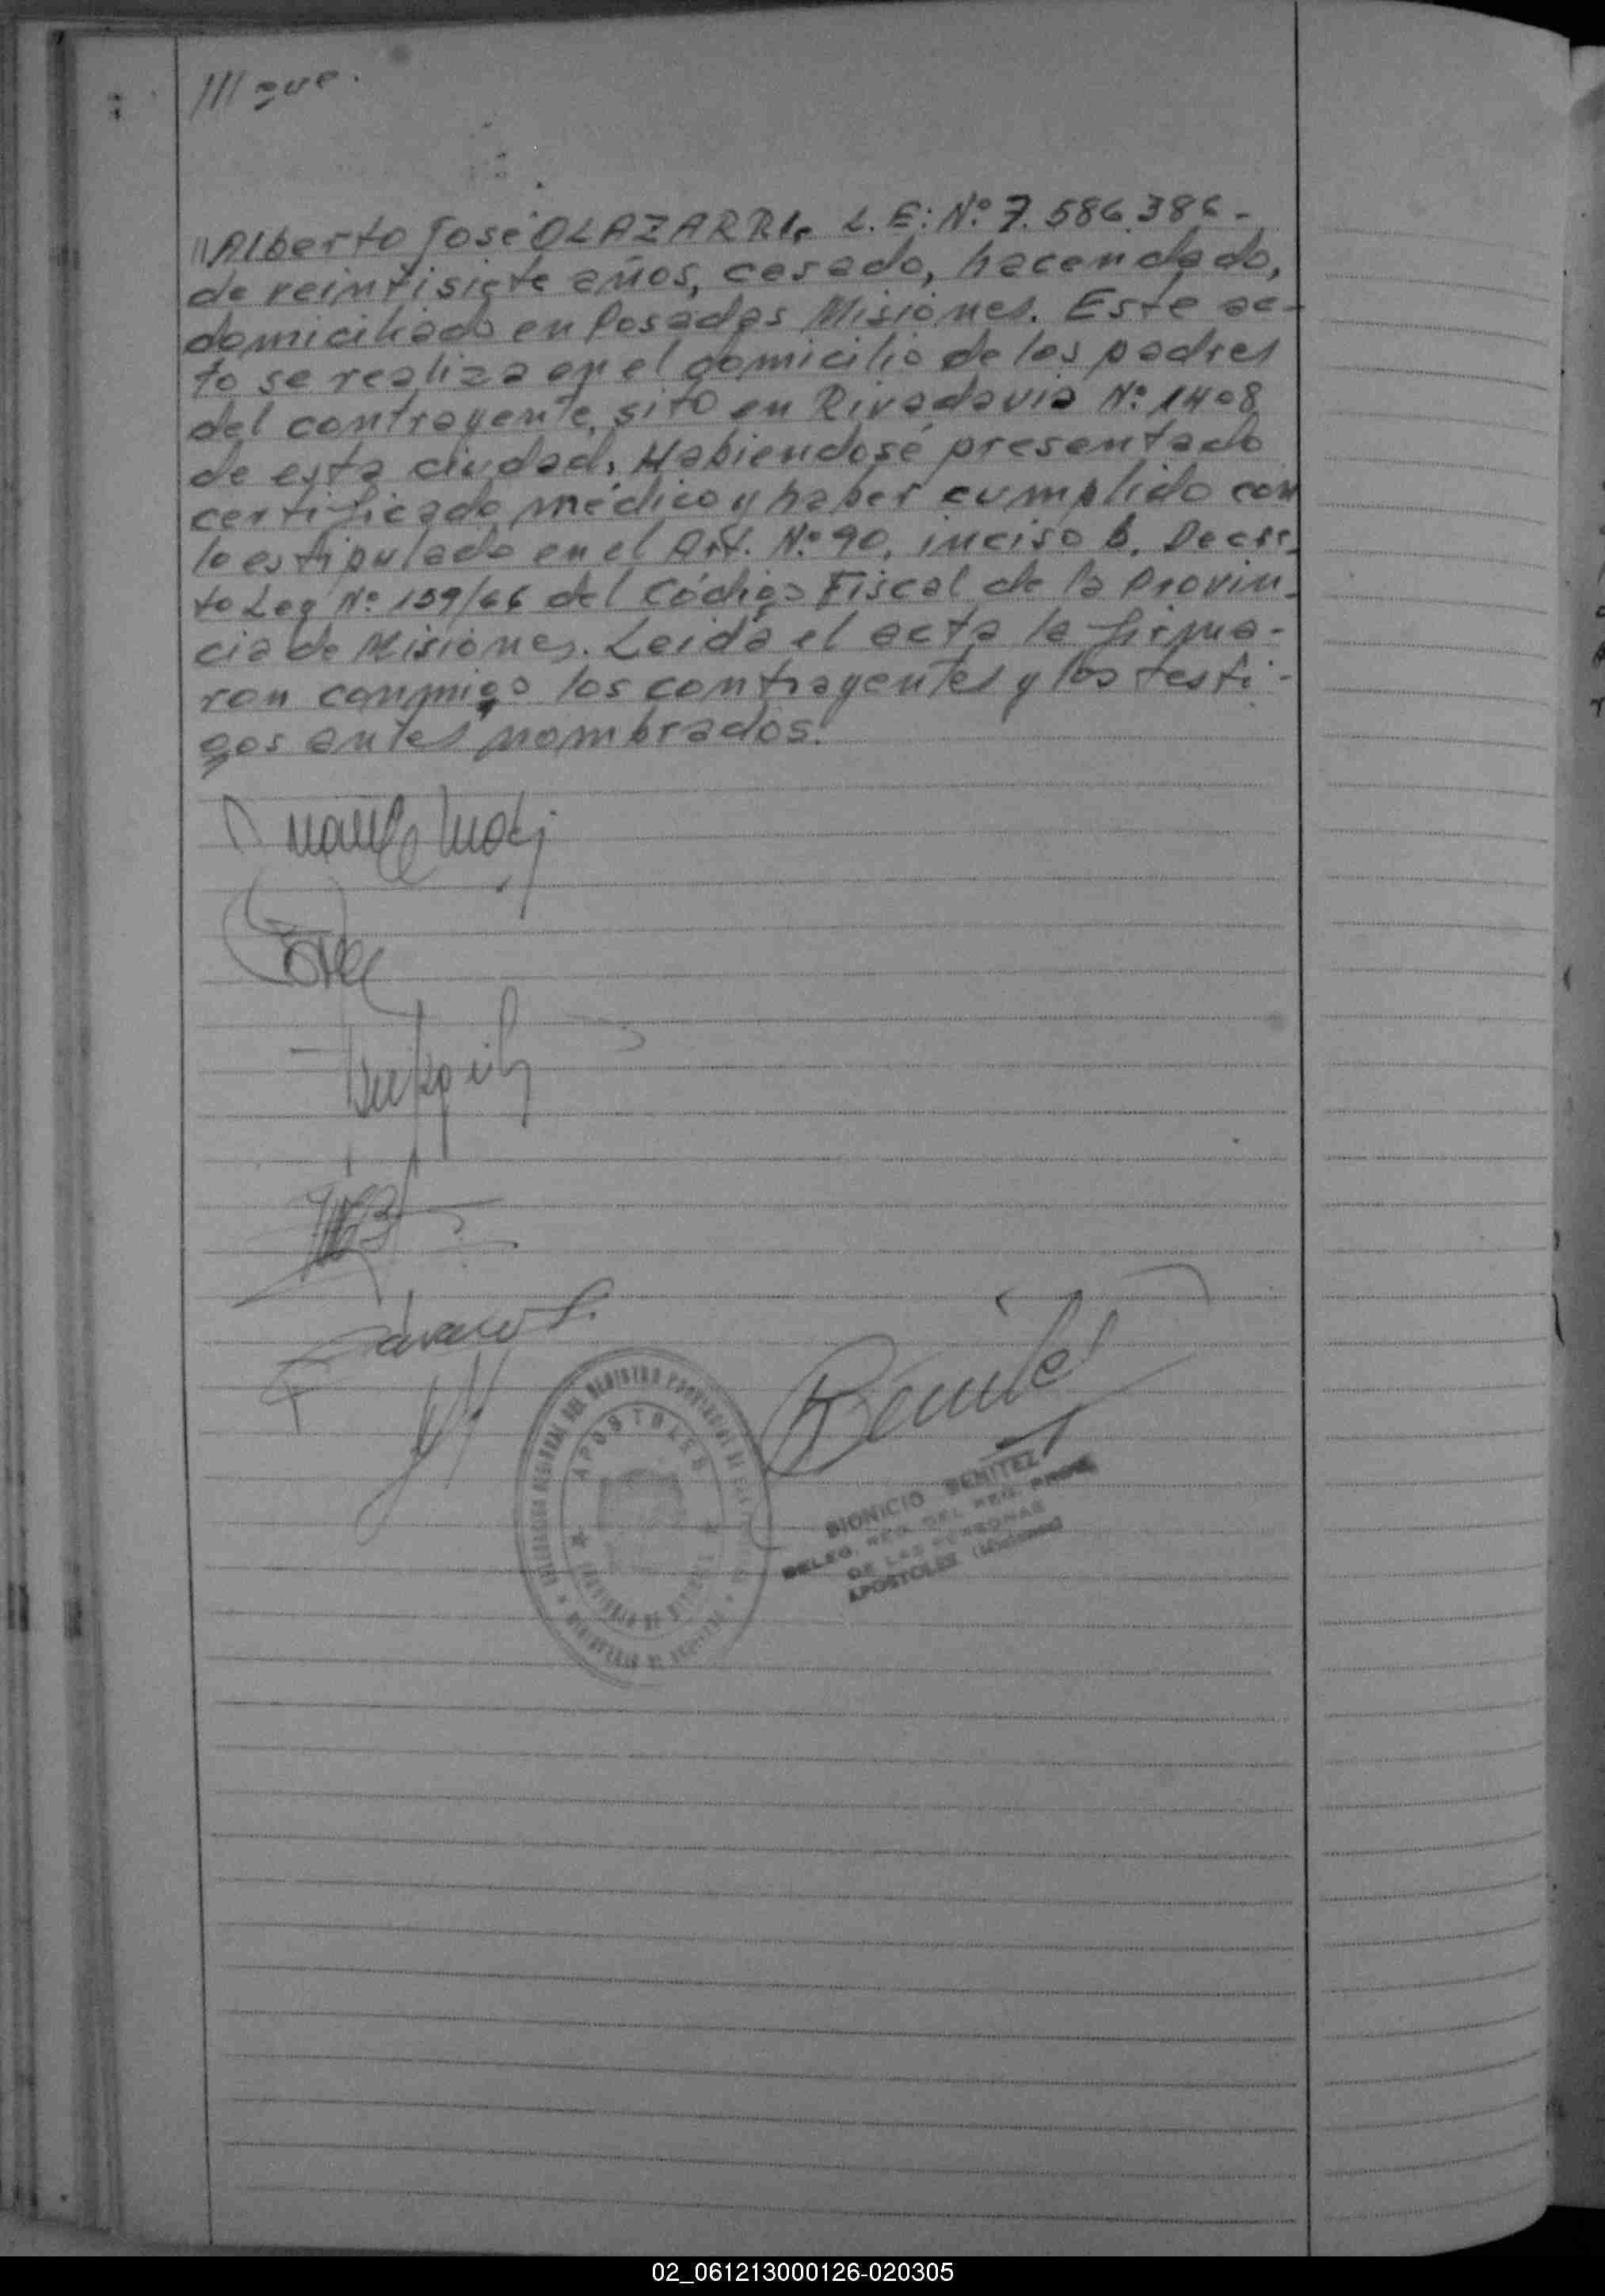 /// que.
//Alberto José OLAZARRI, L.E: Nº 7.586.386-
de veintisiete años, casado, hacendado,
domiciliado en Posadas Misiones. Este ac-
to se realiza en el domicilio de los padres
del contrayente, sito en Rivadavia Nº 1408
de esta ciudad. Habiendosé presentado
certificado médico y haber cumplido con
lo estipulado en el Art. Nº 90, inciso b, Decre-
to Ley Nº 159/66 del Código Fiscal de la Provin-
cia de Misiones. Leida el acta la firma-
ron conmigo los contrayentes y los testi-
gos antes nombrados.
Benitez
APOSTOLES
DIONICIO BENITEZ
DELEG. REG. DEL REG. PROV.
DE LAS PERSONAS
APOSTOLES (Misiones)
02_061213000126-020305